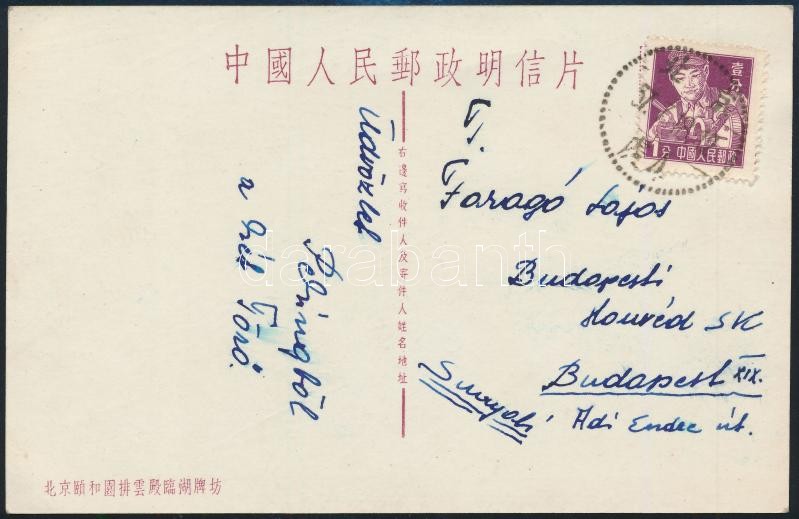 中國人民郵政明信片
壹分
1分 中國人民郵政
右邊寫收件人及寄件人姓名地址
Üdvözlet
Pekingből
a
T.
Faragó Lajos
Budapesti
Honvéd SK
Budapest XIX.
Adi Endre út.
darabanth
北京頤和園排雲殿臨湖牌坊